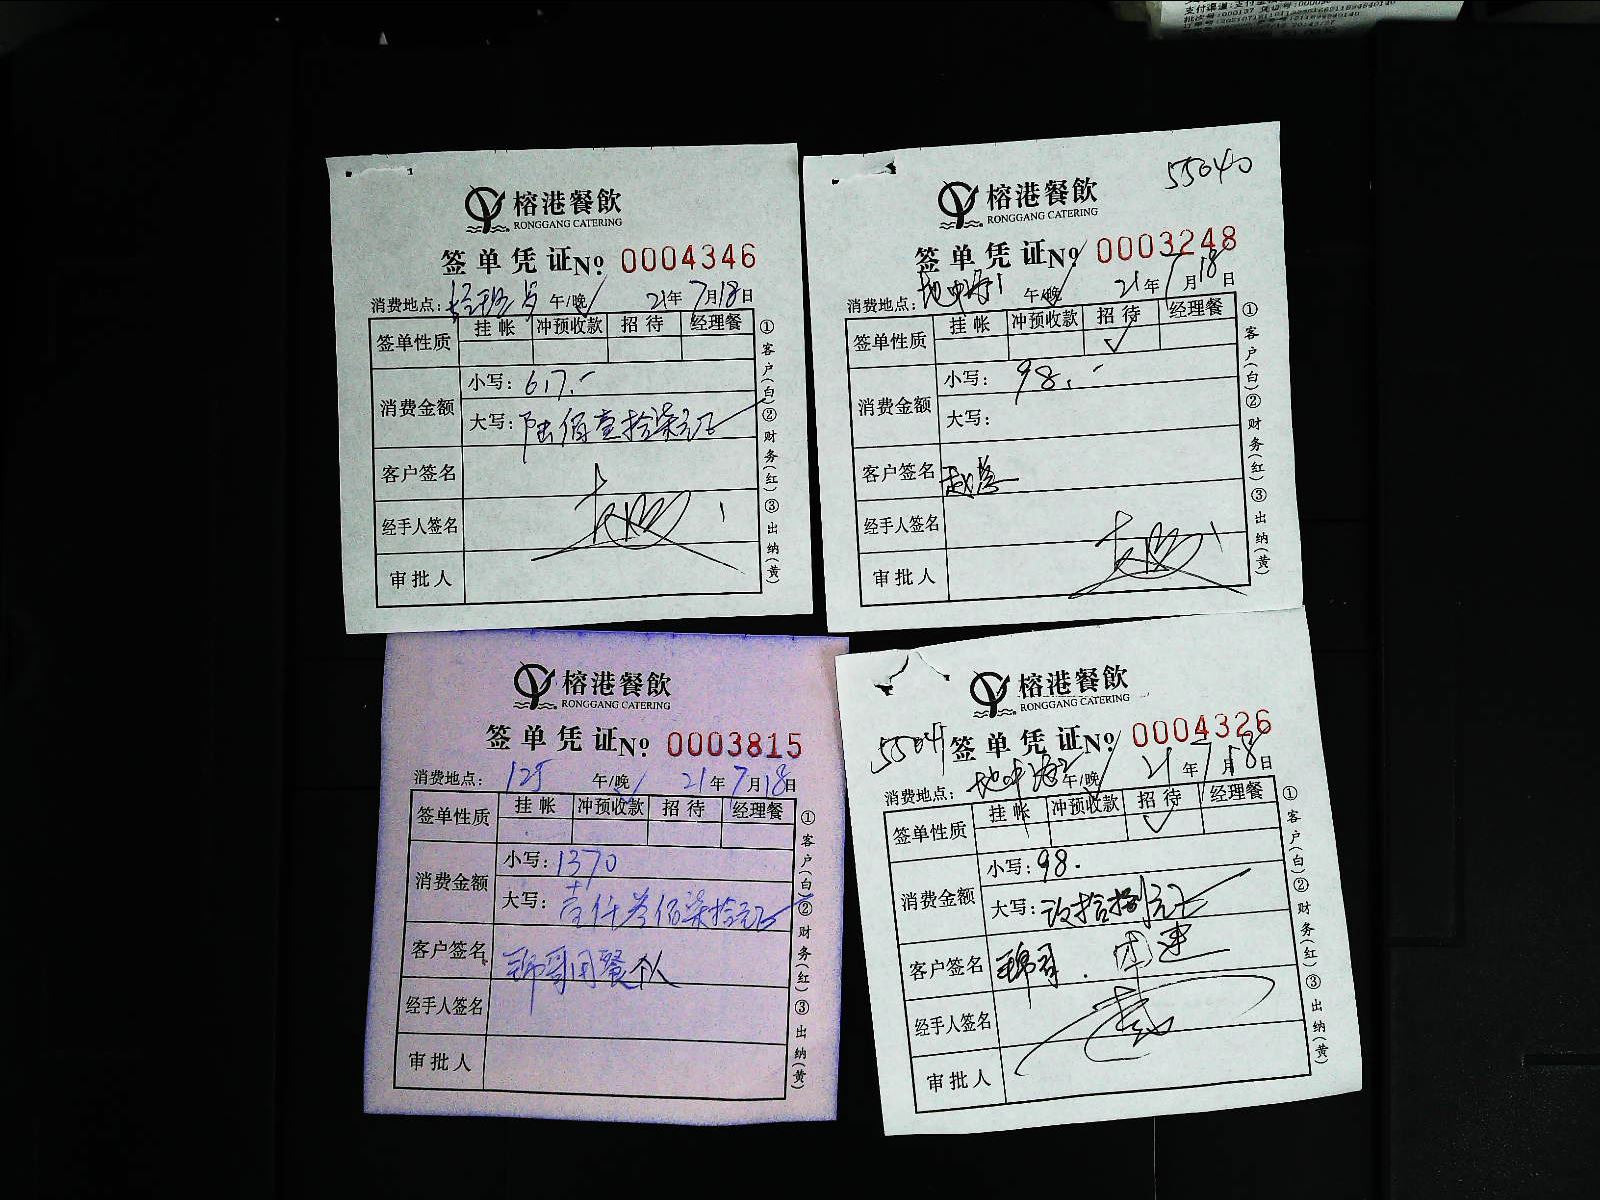 支付渠道:支付宝
榕港餐飲
RONGGANG CATERING
签单凭证No 0004346
消费地点: 午/晚 21年7月18日
签单性质 挂帐 冲预收款 招待 经理餐
消费金额
小写: 617.-
大写: 陆佰壹拾柒元正
客户签名
经手人签名
审批人
①客户(白)②财务(红)③出纳(黄)
55040
榕港餐飲
RONGGANG CATERING
签单凭证No 0003248
消费地点: 地中海1 午/晚 21年7月18日
签单性质 挂帐 冲预收款 招待 经理餐
✓
消费金额
小写: 98.-
大写:
客户签名
经手人签名
审批人
①客户(白)②财务(红)③出纳(黄)
榕港餐飲
RONGGANG CATERING
签单凭证No 0003815
消费地点: 125 午/晚 21年7月18日
签单性质 挂帐 冲预收款 招待 经理餐
消费金额
小写: 1370
大写: 壹仟叁佰柒拾元正
客户签名 哥用餐个人
经手人签名
审批人
①客户(白)②财务(红)③出纳(黄)
榕港餐飲
RONGGANG CATERING
5504 签单凭证No 0004326
消费地点: 地中海2 午/晚 21年7月18日
签单性质 挂帐 冲预收款 招待 经理餐
✓
消费金额
小写: 98.
大写: 玖拾捌元正
客户签名
经手人签名
审批人
①客户(白)②财务(红)③出纳(黄)